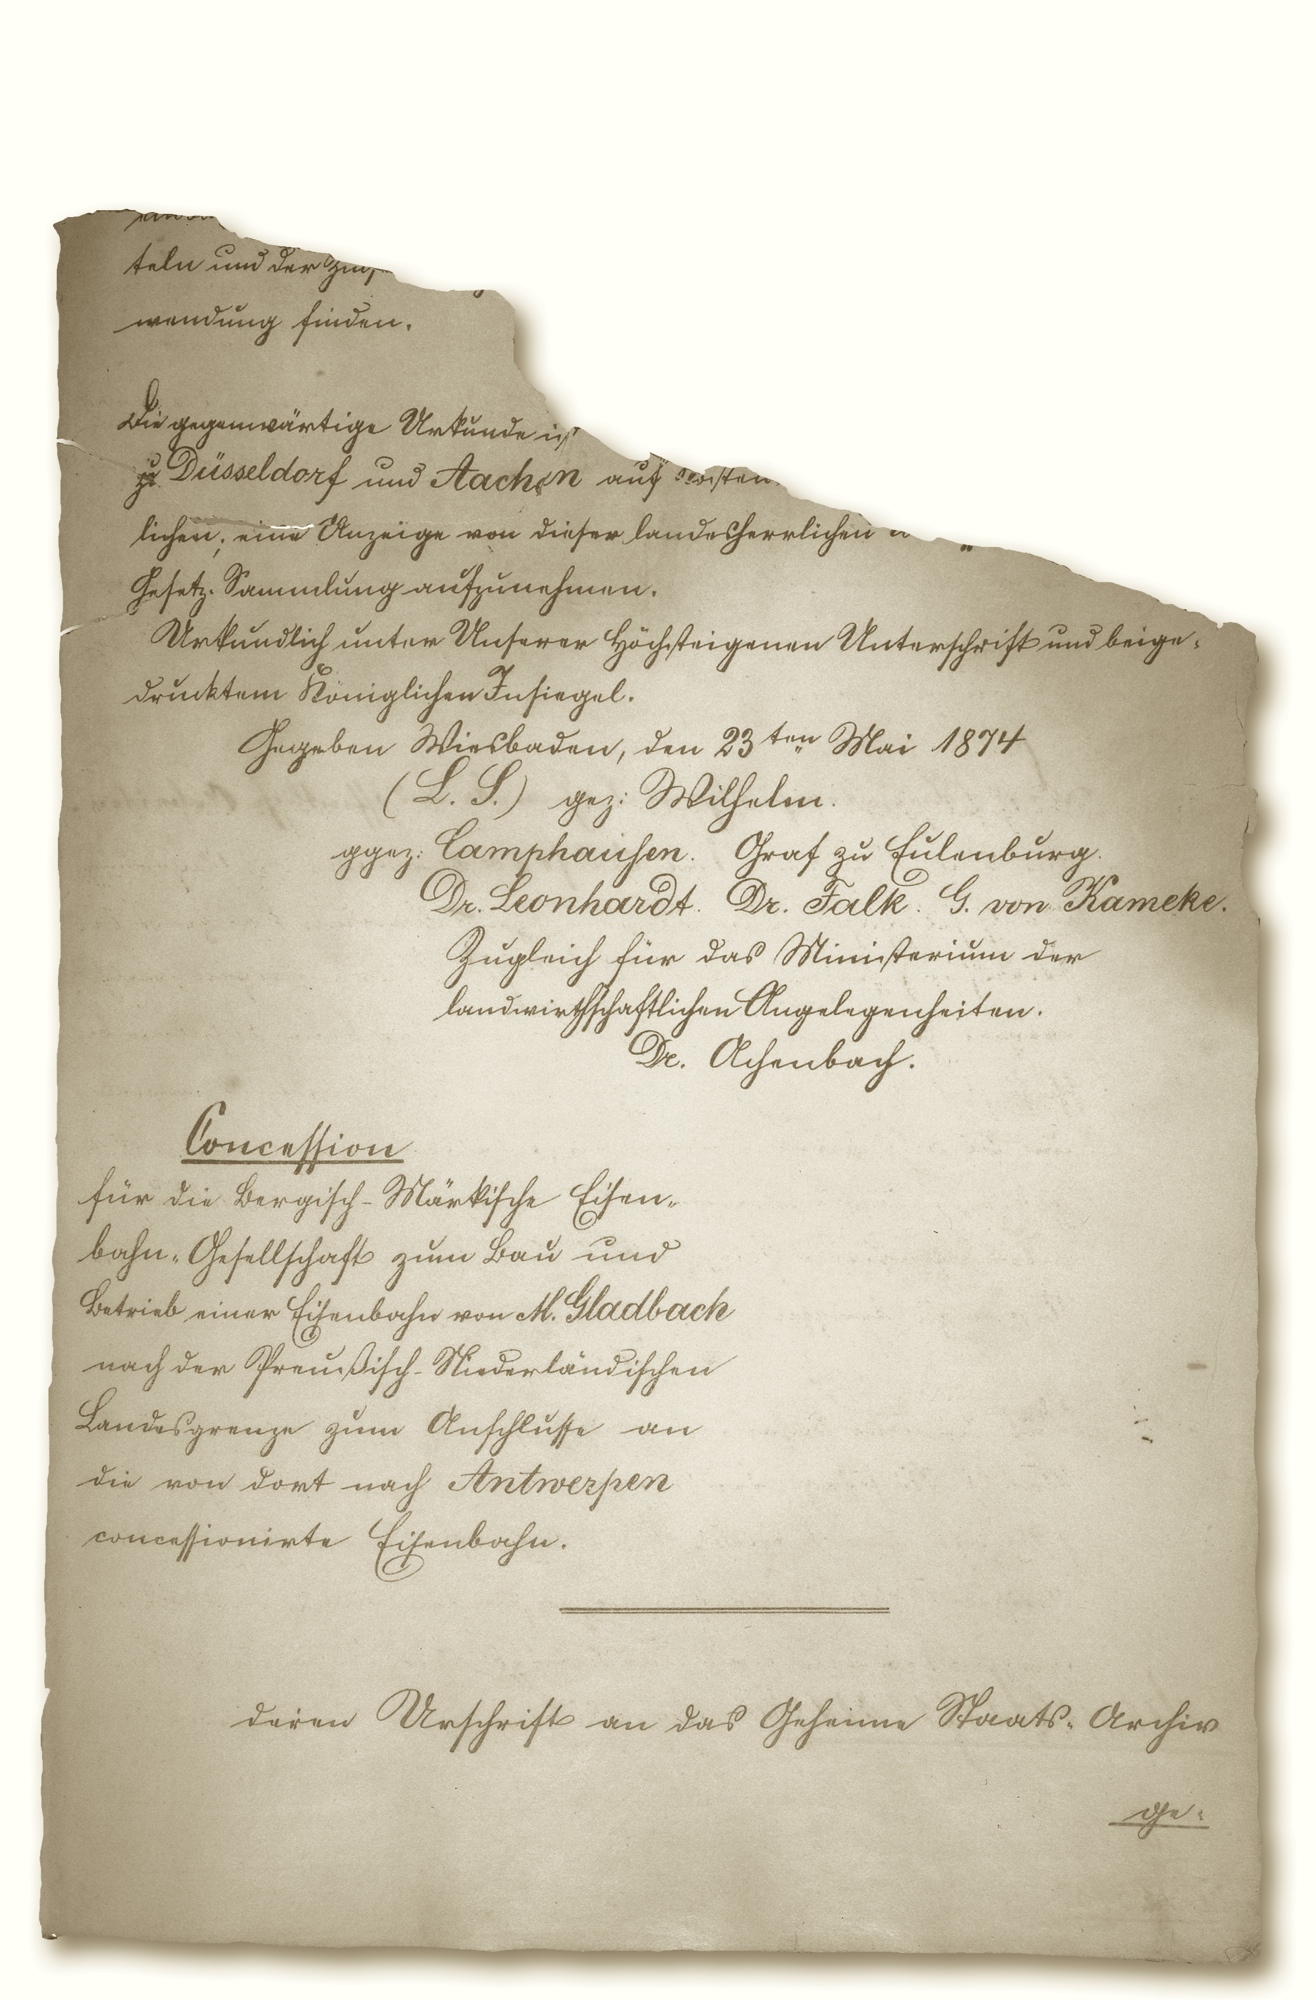 teln und der
wendung finden.
Die gegenwärtige Urkunde ist
zu Düsseldorf und Aachen auf Kosten
lichen; eine Anzeige von dieser landesherrlichen
Gesetz-Sammlung aufzunehmen.
Urkundlich unter Unserer Höchsteigenen Unterschrift und beige-
drucktem Königlichen Insiegel.
Gegeben Wiesbaden, den 23ten Mai 1874
(L. S.) gez: Wilhelm.
ggez: Camphausen. Graf zu Eulenburg.
Dr. Leonhardt. Dr. Falk. G. von Kameke.
Zugleich für das Ministerium der
landwirthschaftlichen Angelegenheiten.
Dr. Achenbach.
Concession
für die Bergisch-Märkische Eisen-
bahn-Gesellschaft zum Bau und
Betrieb einer Eisenbahn von M. Gladbach
nach der Preußisch-Niederländischen
Landesgrenze zum Anschlusse an
die von dort nach Antwerpen
concessionirte Eisenbahn.
deren Urschrift an das Geheime Staats-Archiv
ge-